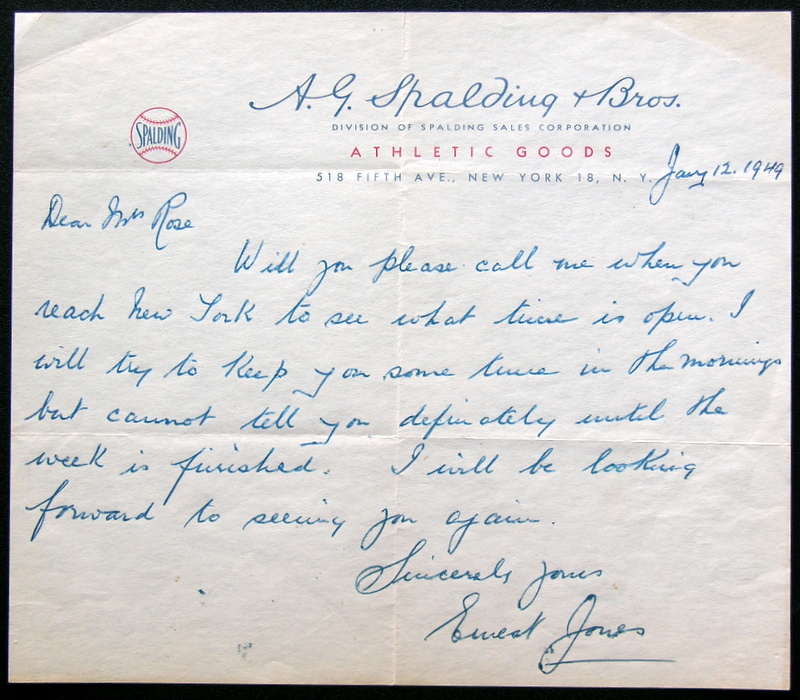 A. G. Spalding & Bros.
DIVISION OF SPALDING SALES CORPORATION
SPALDING
ATHLETIC GOODS
518 FIFTH AVE., NEW YORK 18, N. Y.
Jany 12. 1949
Dear Mrs Rose
Will you please call me when you
reach New York to see what time is open. I
will try to keep you some time in the mornings
but cannot tell you definately until the
week is finished. I will be looking
forward to seeing you again.
Sincerely yours
Ernest Jones